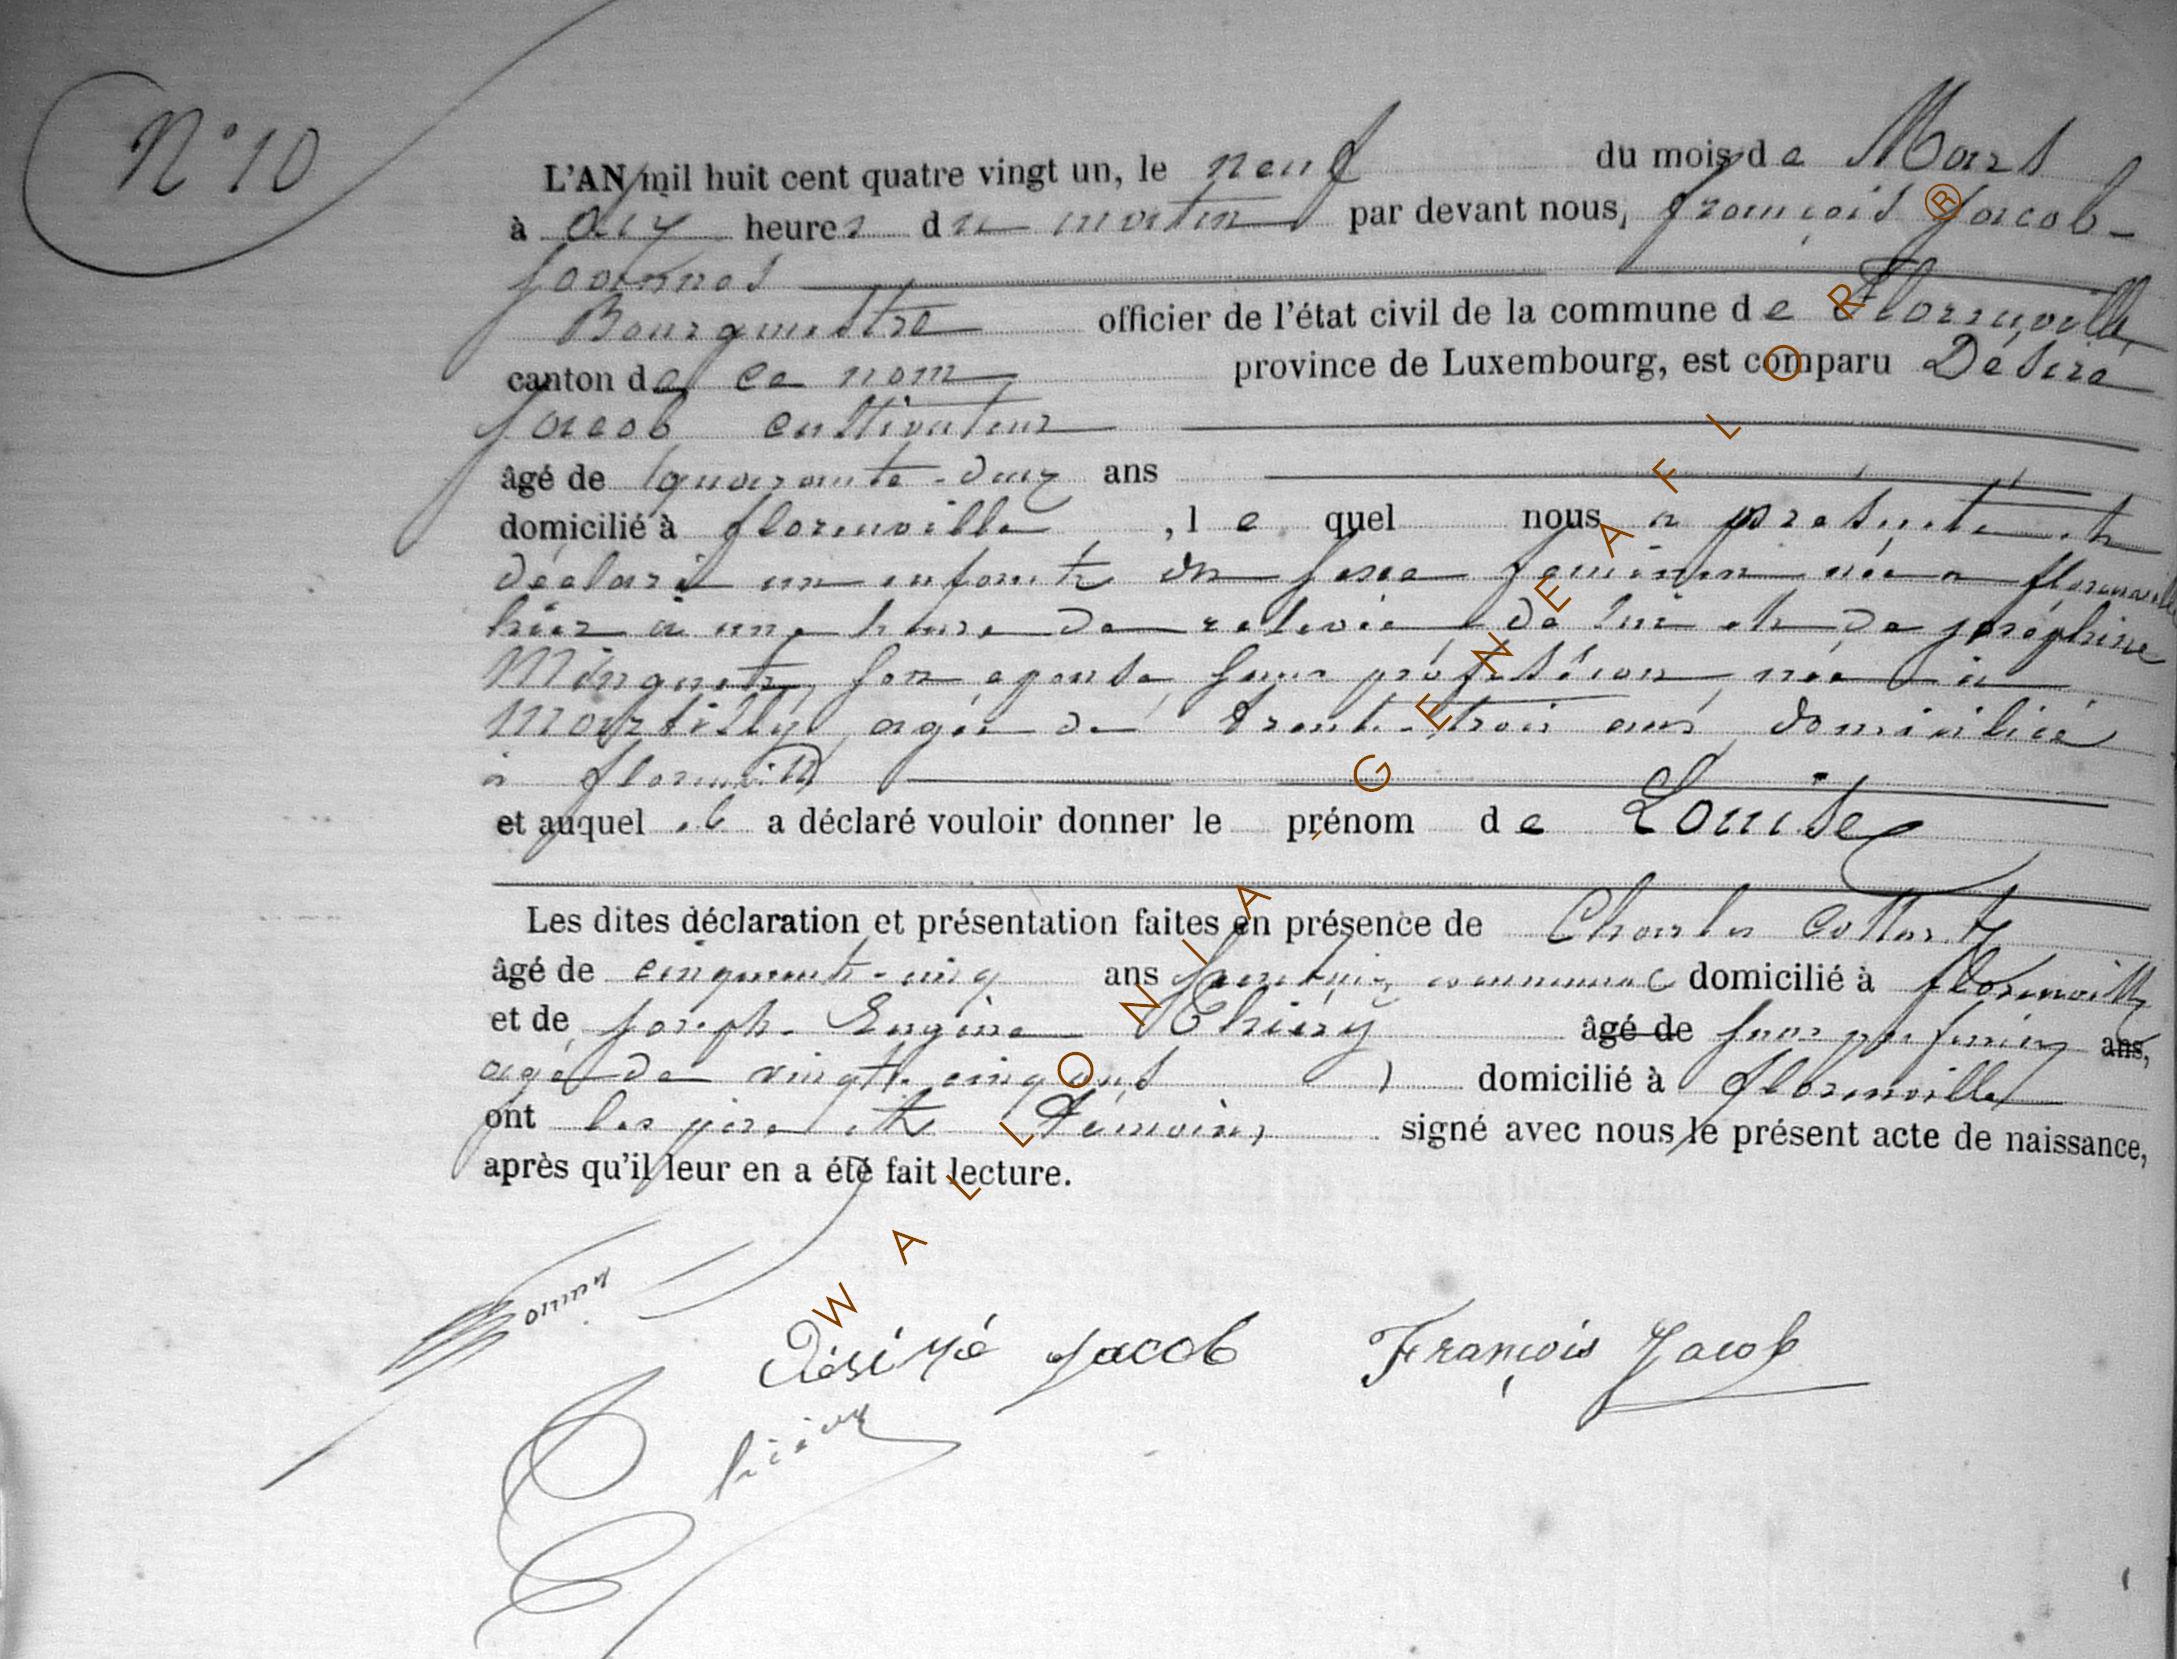 N° 10
L'AN mil huit cent quatre vingt un, le neuf du mois de Mars
à dix heures du matin par devant nous, françois Jacob-
Bourgmestre officier de l'état civil de la commune de Florenville,
canton de ce nom province de Luxembourg, est comparu Désiré
Jacob cultivateur
âgé de quarante-deux ans
domicilié à florenville, le quel nous a présenté et
déclaré un enfant du sexe féminin née a florenville
hier à une heure de relevée de lui et de joséphine
son epouse, sans proféssion née à
agée de trente-trois ans domiciliée
à florenville
et auquel il a déclaré vouloir donner le prénom de Louise
Les dites déclaration et présentation faites en présence de Charles Collart
âgé de cinquante-cinq ans communal domicilié à florenville
et de Joseph Eugène Thiéry âgé de sans profession ans,
agé de vingt-cinq ans, domicilié à florenville
ont les père et témoins signé avec nous le présent acte de naissance,
après qu'il leur en a été fait lecture.
Désiré Jacob François Jacob
WALLONIA - GENEAFLOR®